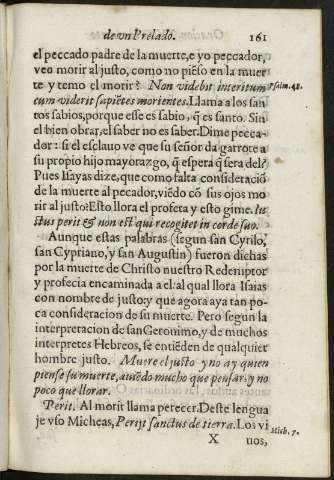 de vn Prelado. 161
el peccado padre de la muerte, e yo peccador,
veo morir al justo, como no piẽso en la muer
te y temo el morir? Non videbit interitum
Psalm. 48.
cum viderit sapiẽtes morientes. Llama a los san
tos sabios, porque esse es sabio, q̃ es santo. Sin
el bien obrar, el saber no es saber. Dime pecca-
dor: si el esclauo ve que su señor da garrote a
su propio hijo mayorazgo, q̃ espera q̃ sera del?
Pues Isayas dize, que como falta consideraciõ
de la muerte al peccador, viẽdo cõ sus ojos mo
rir al justo? Esto llora el profeta y esto gime. Iu
stus perit & non est qui recogitet in corde suo.
Aunque estas palabras (segun san Cyrilo,
san Cypriano, y san Augustin) fueron dichas
por la muerte de Christo nuestro Redemptor
y profecia encaminada a el: al qual llora Isaias
con nombre de justo: y que agora aya tan po-
ca consideracion de su muerte. Pero segun la
interpretacion de san Geronimo, y de muchos
interpretes Hebreos, se entiẽden de qualquier
hombre justo. Muere el justo y no ay quien
piense su muerte, auiẽdo mucho que pensar: y no
poco que llorar.
Perit. Al morir llama perecer. Deste lengua
je vso Micheas, Perijt sanctus de tierra. Los vi
Mich. 7.
X uos,